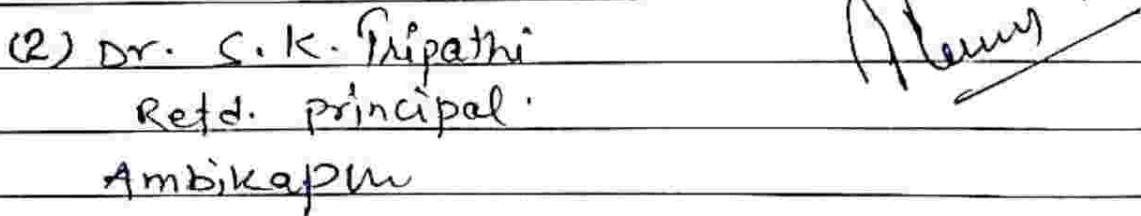 (2) Dr. S. K. Tripathi
Retd. principal.
Ambikapur